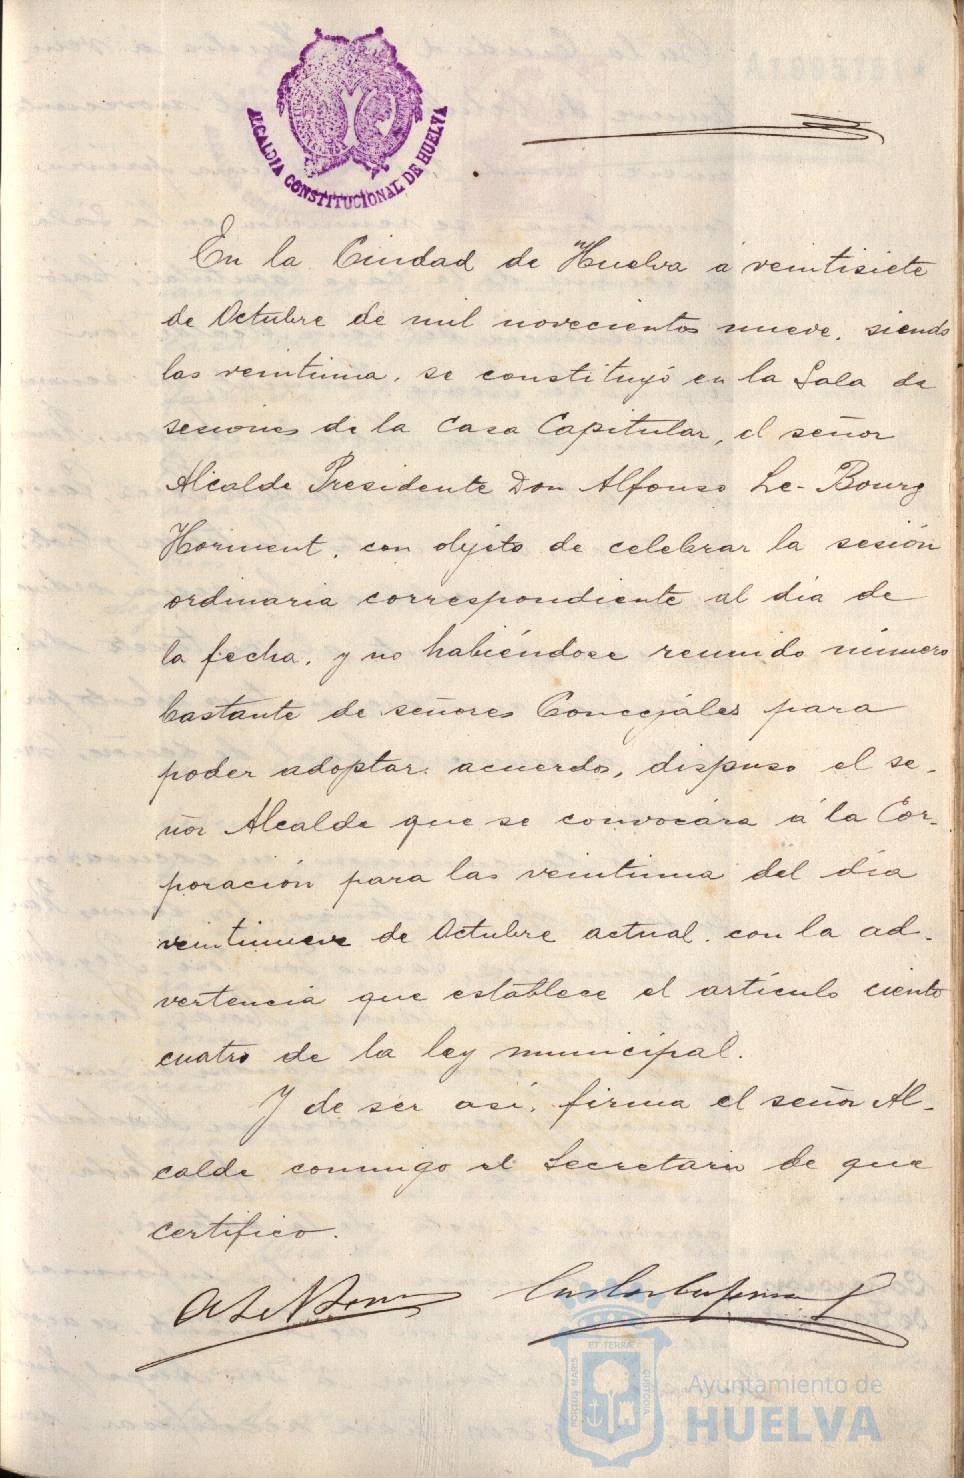 ALCALDIA CONSTITUCIONAL DE HUELVA
En la Ciudad de Huelva á veintisiete
de Octubre de mil novecientos nueve, siendo
las veintiuna, se constituyó en la Sala de
sesiones de la Casa Capitular, el señor
Alcalde Presidente Don Alfonso Le-Bourg
Horment, con objeto de celebrar la sesión
ordinaria correspondiente al dia de
la fecha, y no habiéndose reunido número
bastante de señores Concejáles para
poder adoptar acuerdos, dispuso el se-
ñor Alcalde que se convocára á la Cor-
poración para las veintiuna del día
veintinueve de Octubre actual, con la ad-
vertencia que establece el artículo ciento
cuatro de la ley municipal.
Y de ser así, firma el señor Al-
calde conmigo el Secretario de que
certifico.
A Le Bourg
PORTUS MARIS ET TERRÆ CUSTODIA
Ayuntamiento de
HUELVA